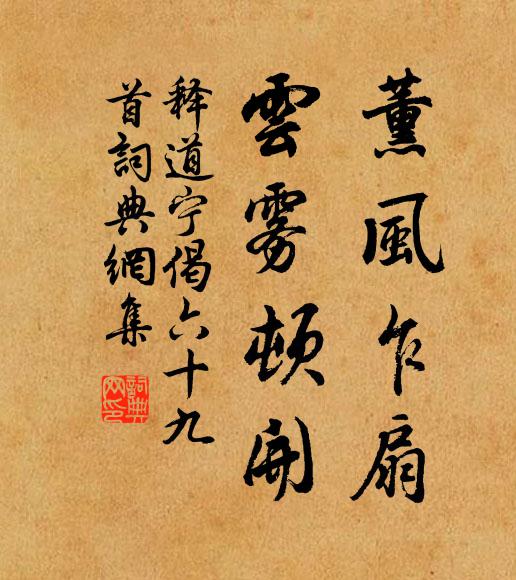 薰風乍扇
雲雾頓開
释道宁偈六十九
首詞典網集
詞典网印